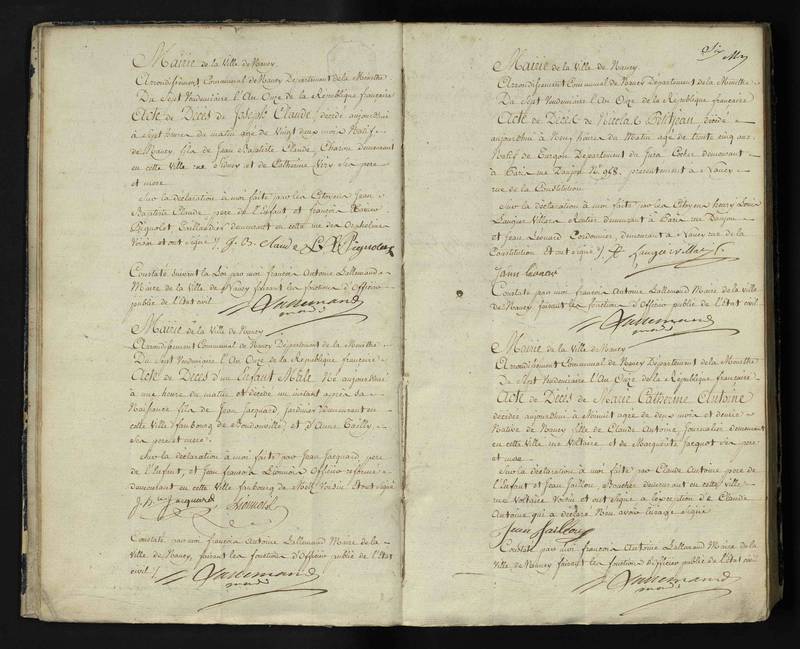 Mairie de la Ville de Nancy.
Arrondissement Communal de Nancy Département de la Meurthe
Du Sept Vendemiaire l'An Onze de la Republique française
Acte de Décès de Joseph Claude, decédé aujourdhui
à Sept heures du matin agé de Vingt deux mois Natif
de Nancy, fils de Jean Baptiste Claude Charon demeurant
en cette Ville rue et de Catherine Viry ses pere
et mere
Sur la déclaration à moi faite par les Citoyens Jean
Baptiste Claude, pere de l'Enfant et françois Xavier
Pignolet demeurant en cette rue des Orphelins
Voisin et ont signé /. J. B. Claude Pignolet
Constaté suivant la Loi par moi françois Antoine Lallemand
Maire de la Ville de Nancy faisant les fonctions d'Officier
public de l'état civil /. Lallemand
maire
Mairie de la Ville de Nancy
Arrondissement Communal de Nancy Département de la Meurthe
Du Sept Vendemiaire l'An Onze de la Republique française
Acte de Décès d'un Enfant Mâle Né aujourdhui
à une heure du matin et décédé un instant après sa
Naissance fils de Jean Jacquard, Jardinier demeurant en
cette Ville faubourg de Boudonville et d'Anne Gailly
ses pere et mere.
Sur la déclaration à moi faite par Jean Jacquard, pere
de l'Enfant, et Jean françois Lionnois Officier reformé
demeurant en cette Ville faubourg de Voisin et ont signé
Jacquard Lionnois
Constaté par moi françois Antoine Lallemand Maire de la
Ville de Nancy, faisant les fonctions d'Officier public de l'état
civil /. Lallemand
maire
Six
Mairie de la Ville de Nancy.
Arrondissement Communal de Nancy Département de la Meurthe
Du Sept Vendemiaire l'An Onze de la Republique française
Acte de Décès de Nicolas Petitjean decédé
aujourdhui à Neuf heures du Matin agé de trente cinq ans
Natif de Département du Jura Cocher demeurant
à Paris rue Danjou N.° 968, présentement à Nancy
rue de la Constitution
Sur la déclaration à moi faite par les Citoyens henry Louis
Laugier Villars Rentier demeurant à Paris rue Danjou
et Jean Léonard Cordonnier, demeurant à Nancy rue de la
Constitution et ont signé /. Laugier villars
Jean leonar
Constaté par moi françois Antoine Lallemand Maire de la Ville
de Nancy, faisant les fonctions d'Officier public de l'état civil
Lallemand
maire
Mairie de la Ville de Nancy
Arrondissement Communal de Nancy Département de la Meurthe
Du Sept Vendemiaire l'An Onze de la République française
Acte de Décès de Marie Catherine Antoine
decédée aujourdhui à Minuit agée de deux mois et demie
Native de Nancy fille de Claude Antoine, Journalier demeurant
en cette Ville rue Voltaire et de Marguerite Jacquot ses pere
et mere
Sur la déclaration à moi faite par Claude Antoine pere de
l'Enfant et Jean Gaillou Boucher demeurant en cette Ville
rue Voltaire Voisin et ont signé a l'exception de Claude
Antoine qui a déclaré n'en avoir l'usage signé
Jean Gaillou
Constaté par moi françois Antoine Lallemand Maire de la
Ville de Nancy faisant les fonctions d'officier public de l'état civil
Lallemand
maire